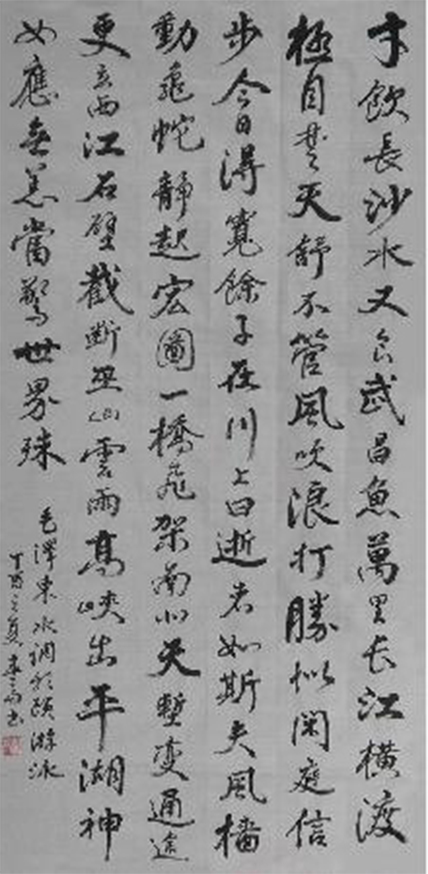 才飲長沙水又食武昌魚萬里长江橫渡
極目楚天舒不管風吹浪打勝似閑庭信
步今日得寬餘子在川上曰逝者如斯夫風檣
動龜蛇靜起宏圖一橋飛架南北天塹變通途
更立西江石壁截斷巫山雲雨高峽出平湖神
女應無恙當驚世界殊
毛澤東水調歌頭游泳
丁酉之夏李書